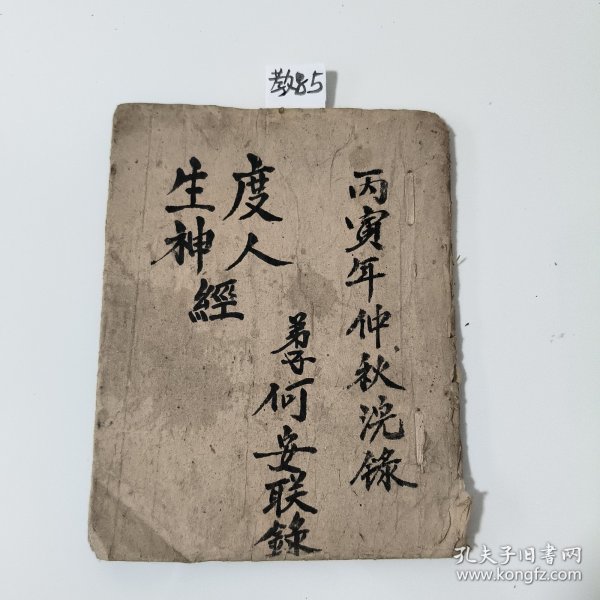 丙寅年仲秋浣錄
度人
生神
經
弟子何安联錄
孔夫子旧书网
www.kongfz.com